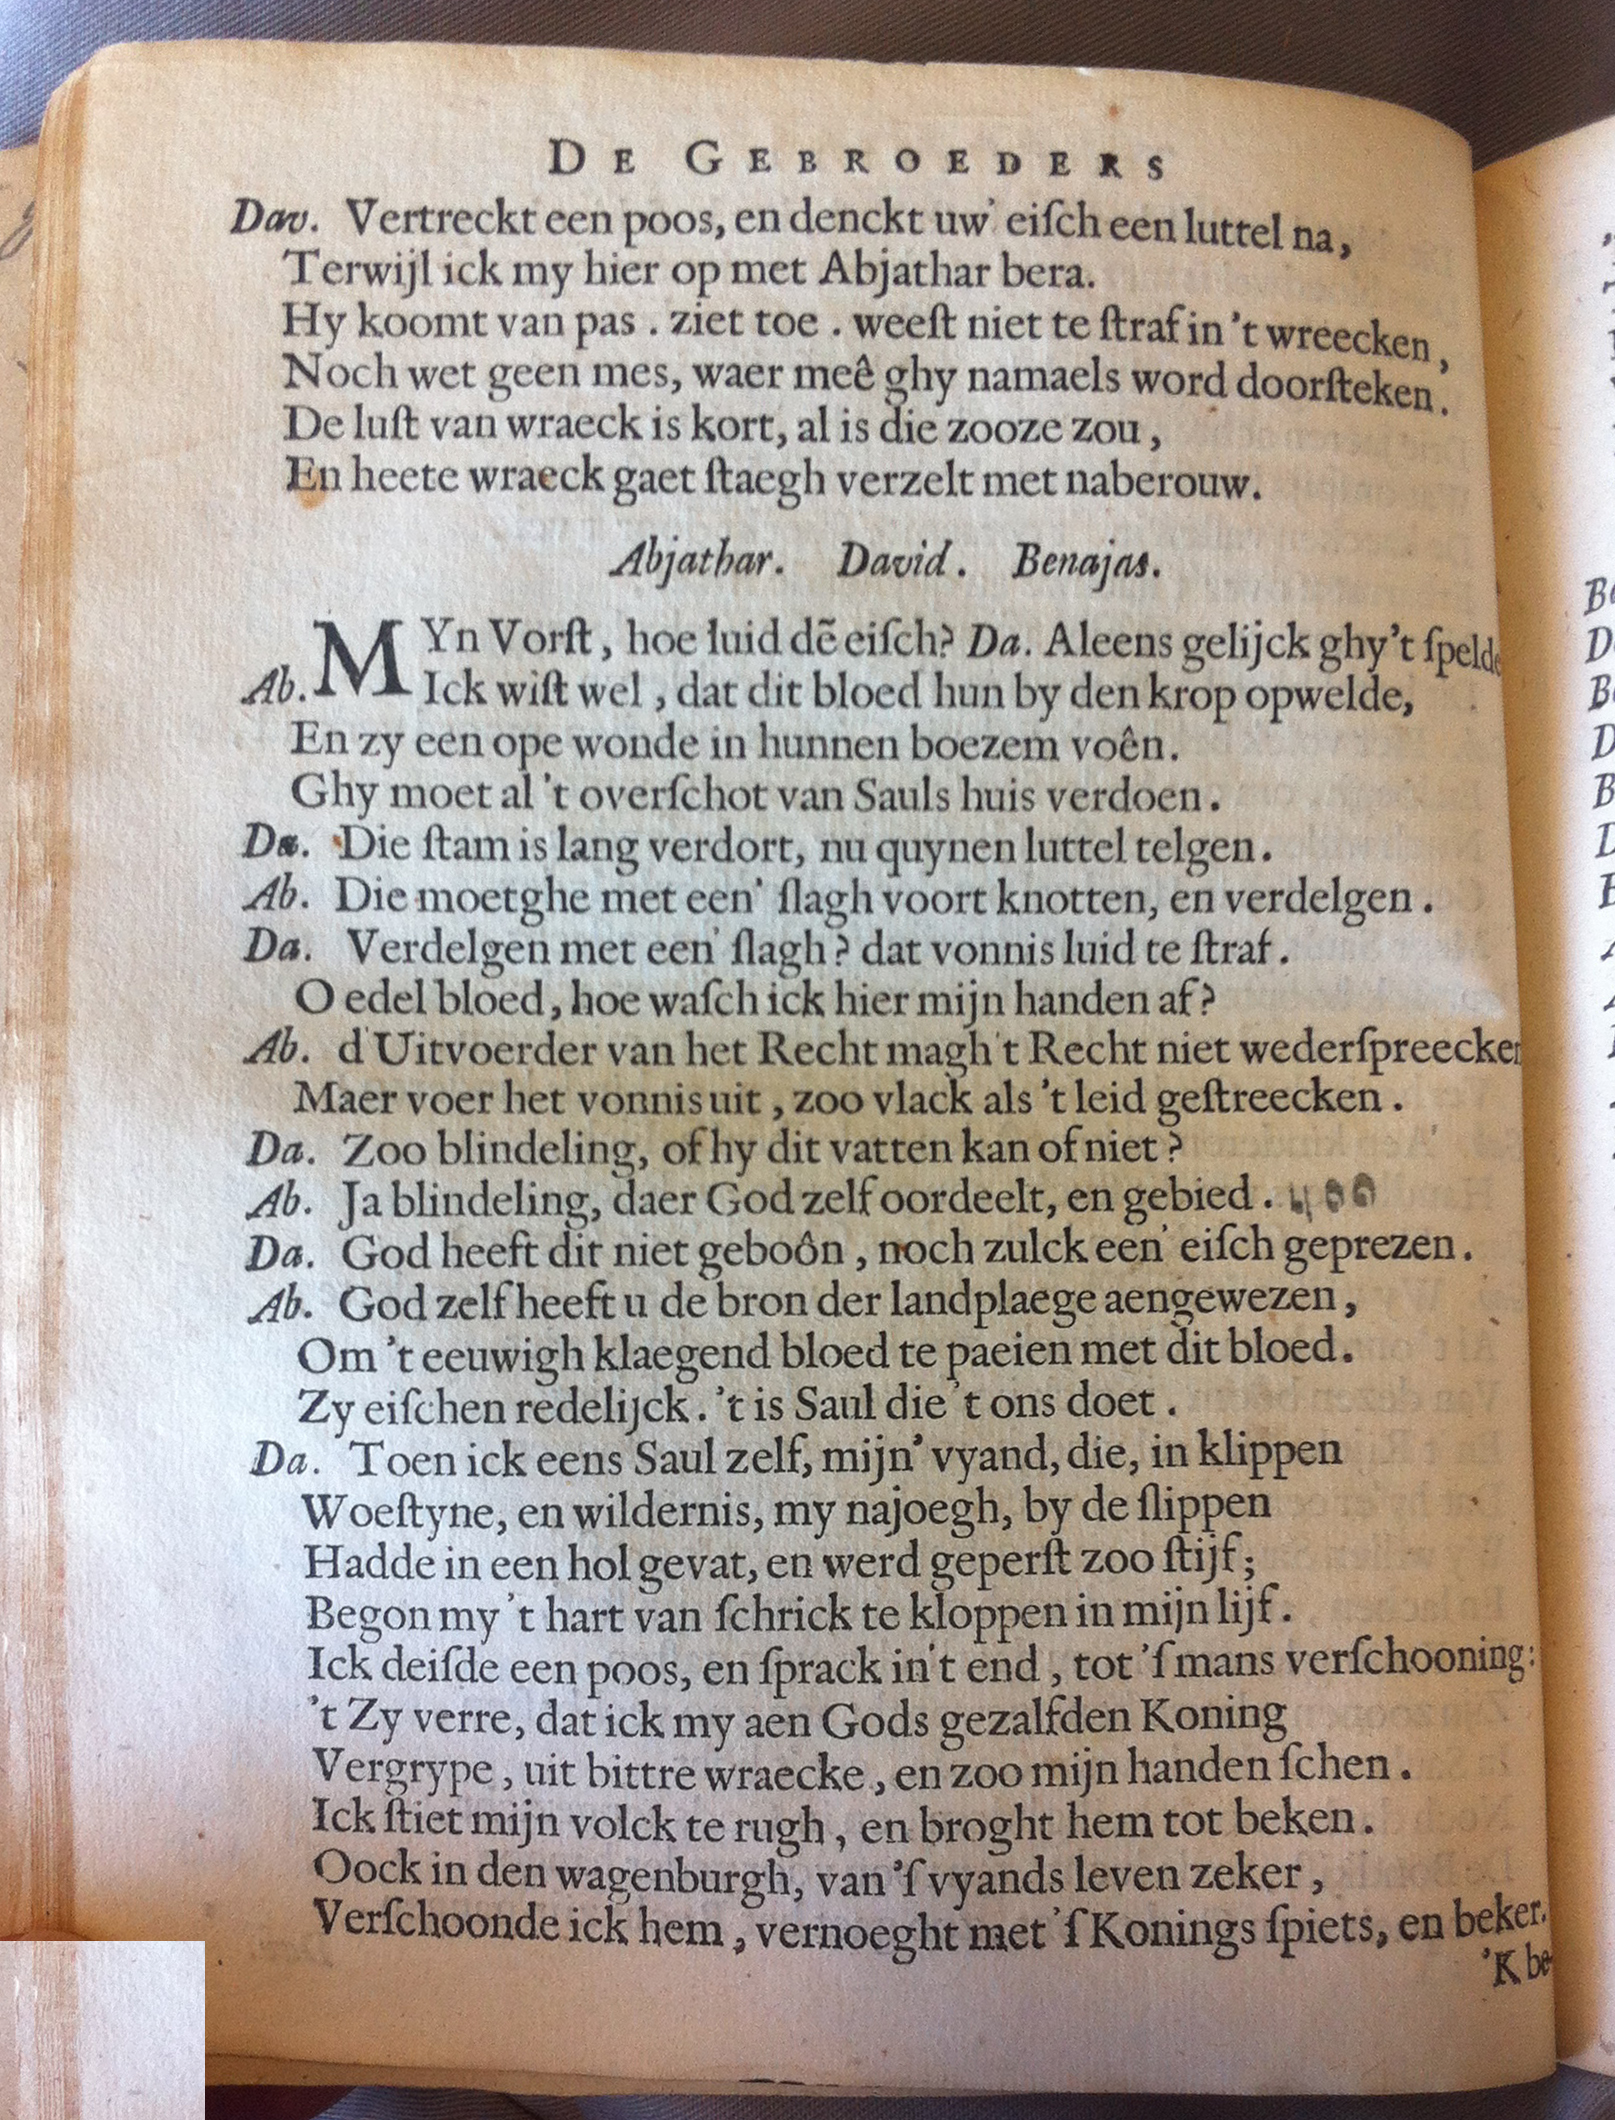 DE GEBROEDERS
Dav. Vertreckt een poos, en denckt uw' eiſch een luttel na,
Terwijl ick my hier op met Abjathar bera.
Hy koomt van pas . ziet toe . weeſt niet te ſtraf in 't wreecken,
Noch wet geen mes, waer meê ghy namaels word doorſteken.
De luſt van wraeck is kort, al is die zooze zou,
En heete wraeck gaet ſtaegh verzelt met naberouw.
Abjathar. David. Benajas.
MYn Vorſt, hoe luid dẽ eiſch? Da. Aleens gelijck ghy't ſpelde
Ab. Ick wiſt wel, dat dit bloed hun by den krop opwelde,
En zy een ope wonde in hunnen boezem voên.
Ghy moet al 't overſchot van Sauls huis verdoen.
Da. Die ſtam is lang verdort, nu quynen luttel telgen.
Ab. Die moetghe met een' ſlagh voort knotten, en verdelgen.
Da. Verdelgen met een' ſlagh? dat vonnis luid te ſtraf.
O edel bloed, hoe waſch ick hier mijn handen af?
Ab. d'Uitvoerder van het Recht magh 't Recht niet wederſpreecken
Maer voer het vonnis uit, zoo vlack als 't leid geſtreecken.
Da. Zoo blindeling, of hy dit vatten kan of niet?
Ab. Ja blindeling, daer God zelf oordeelt, en gebied.
Da. God heeft dit niet geboôn, noch zulck een' eiſch geprezen.
Ab. God zelf heeft u de bron der landplaege aengewezen,
Om 't eeuwigh klaegend bloed te paeien met dit bloed.
Zy eiſchen redelijck. 't is Saul die 't ons doet.
Da. Toen ick eens Saul zelf, mijn' vyand, die, in klippen
Woeſtyne, en wildernis, my najoegh, by de ſlippen
Hadde in een hol gevat, en werd geperſt zoo ſtijf;
Begon my 't hart van ſchrick te kloppen in mijn lijf.
Ick deiſde een poos, en ſprack in't end, tot 'ſ mans verſchooning:
't Zy verre, dat ick my aen Gods gezalfden Koning
Vergrype, uit bittre wraecke, en zoo mijn handen ſchen.
Ick ſtiet mijn volck te rugh, en broght hem tot beken.
Oock in den wagenburgh, van 'ſ vyands leven zeker,
Verſchoonde ick hem, vernoeght met 'ſ Konings ſpiets, en beker.
'K be-